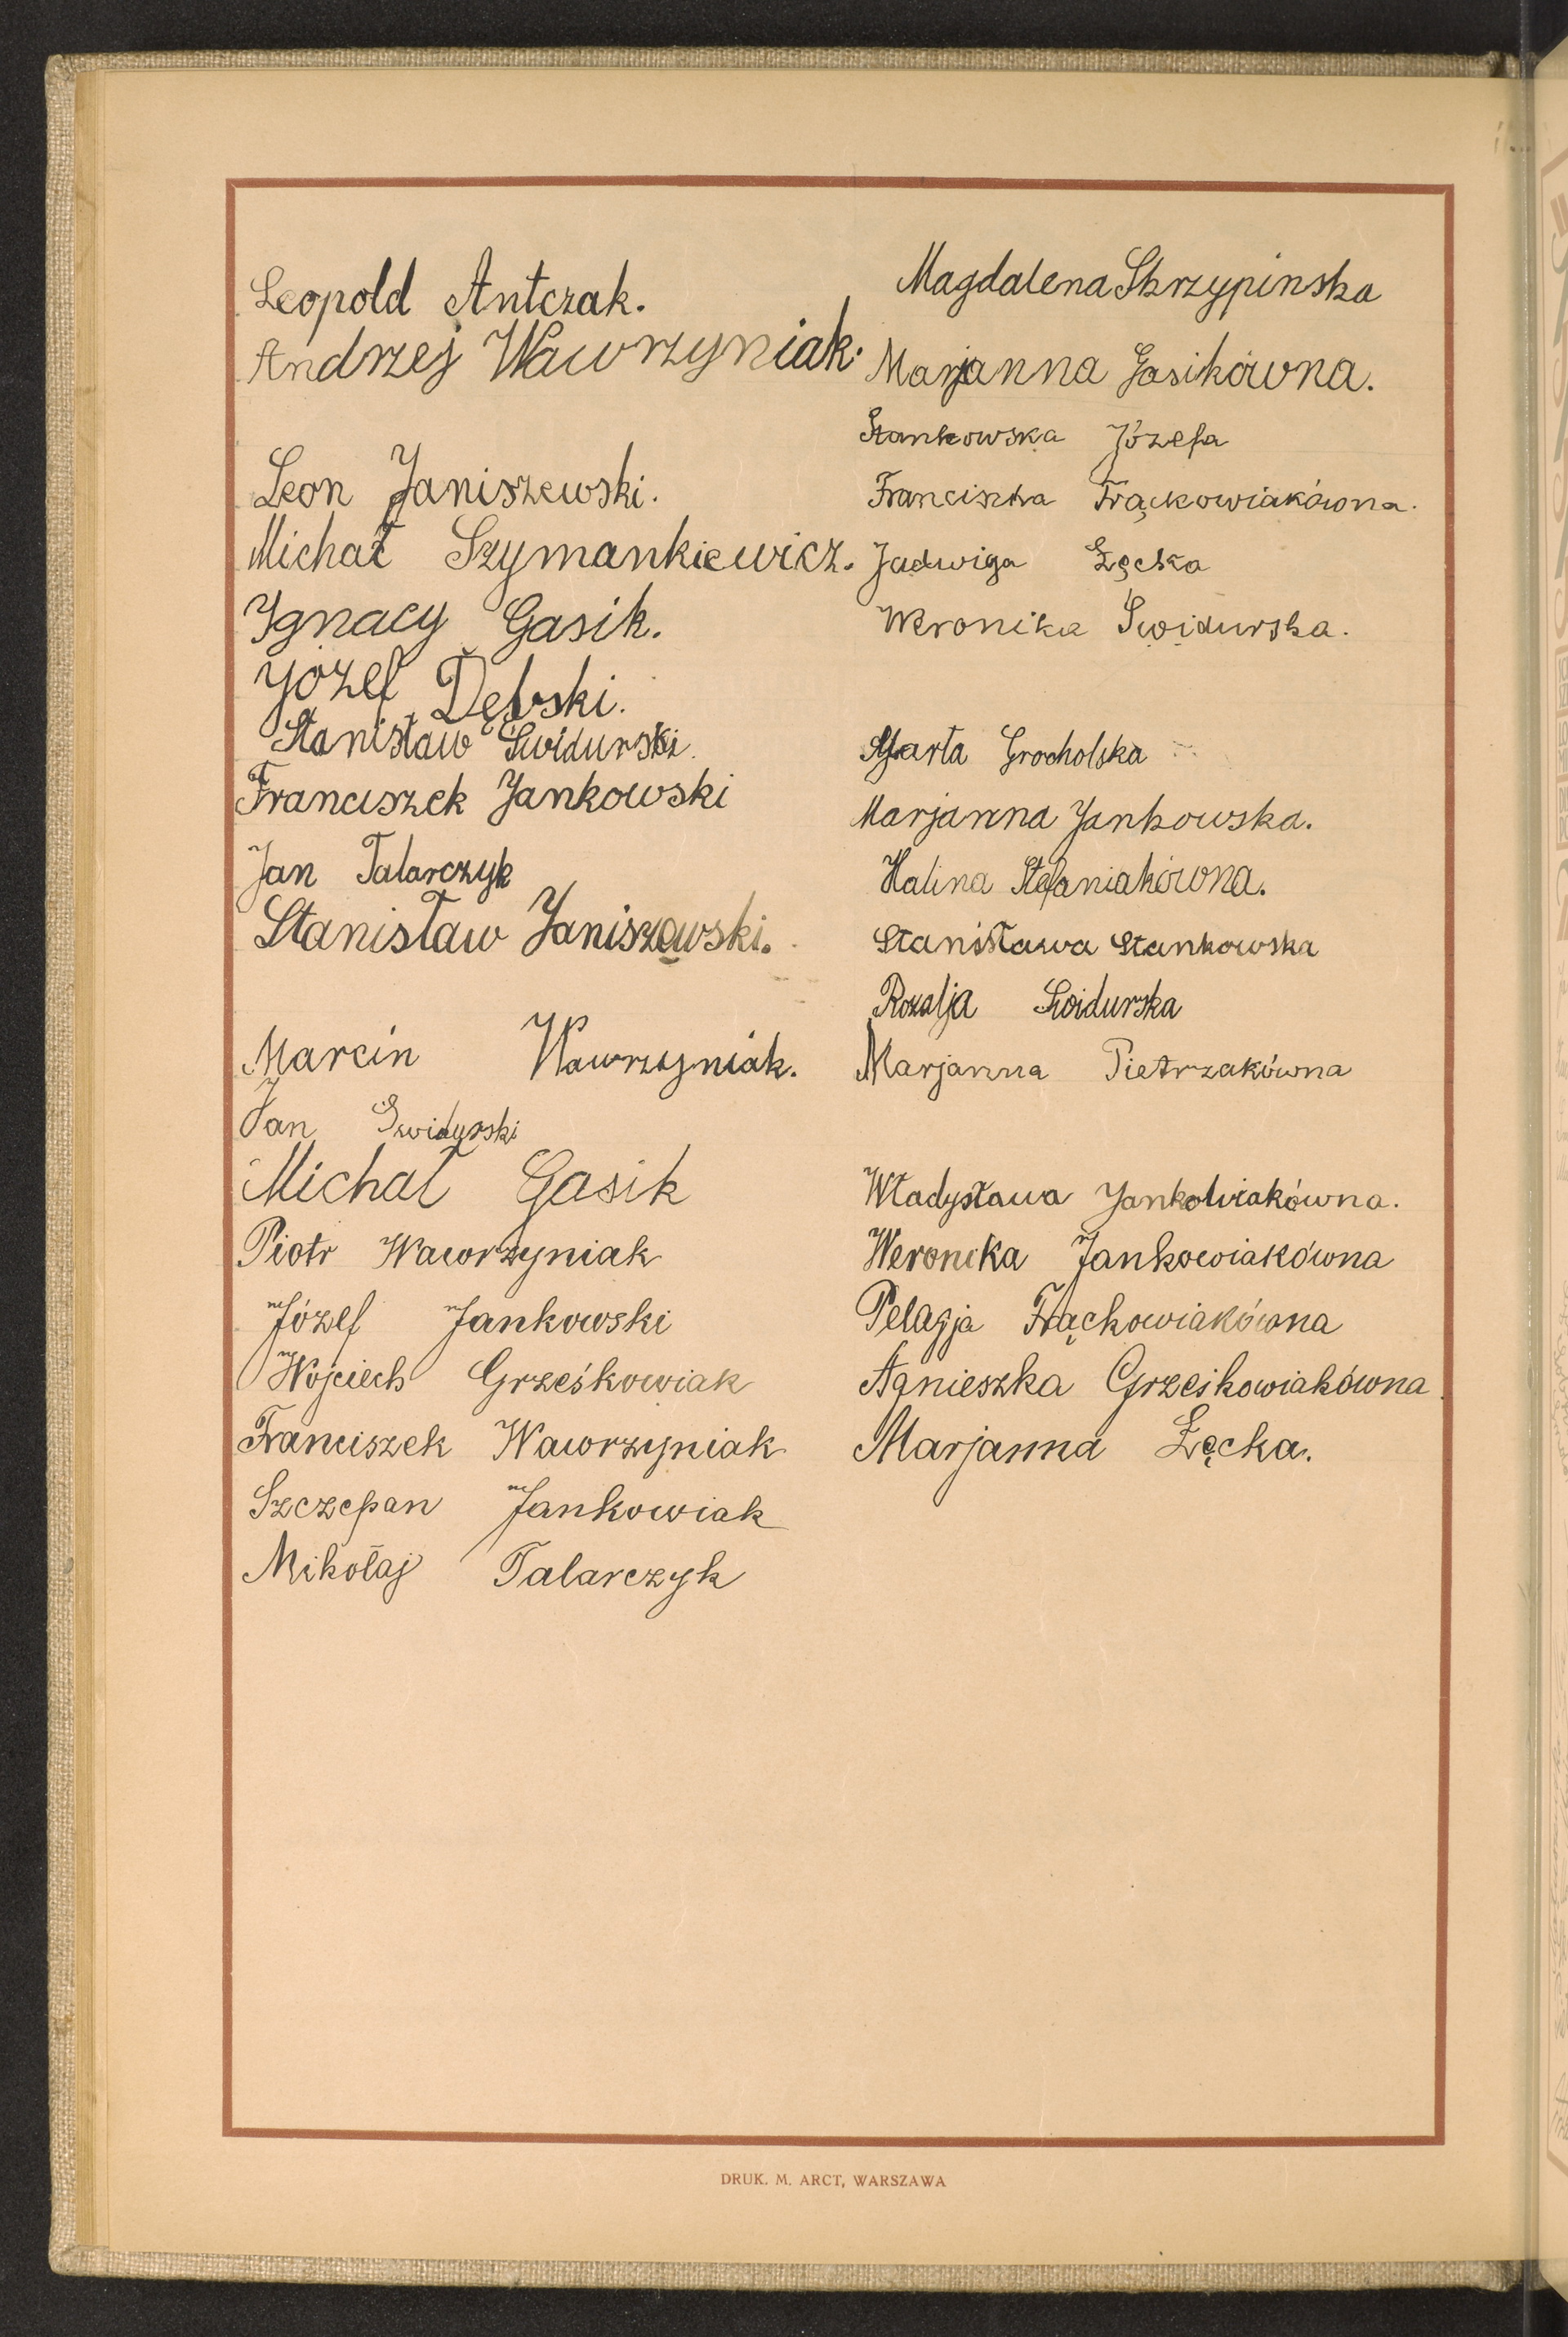 Leopold Antczak.
Andrzej Wawrzyniak.
Leon Janiszewski.
Michał Szymankiewicz.
Ignacy Gasik.
Józef Dębski.
Stanisław Swidurski.
Franciszek Jankowski
Jan Talarczyk
Stanisław Janiszewski.
Marcin Wawrzyniak.
Jan Swidurski
Michał Gasik
Piotr Wawrzyniak
Józef Jankowski
Wojciech Grześkowiak
Franciszek Wawrzyniak
Szczepan Jankowiak
Mikołaj Talarczyk
Magdalena Skrzypinska
Marjanna Gasikówna.
Stankowska Józefa
Franciszka Frąckowiakówna.
Jadwiga Łęcka
Weronika Swidurska.
Marta Grocholska
Marjanna Jankowska.
Halina Stefaniakówna.
Stanisława Stankowska
Rozalja Swidurska
Marjanna Pietrzakówna
Władysława Jankowiakówna.
Weronika Jankowiakówna
Pelagja Frąckowiakówna
Agnieszka Grześkowiakówna.
Marjanna Łęcka.
DRUK. M. ARCT, WARSZAWA